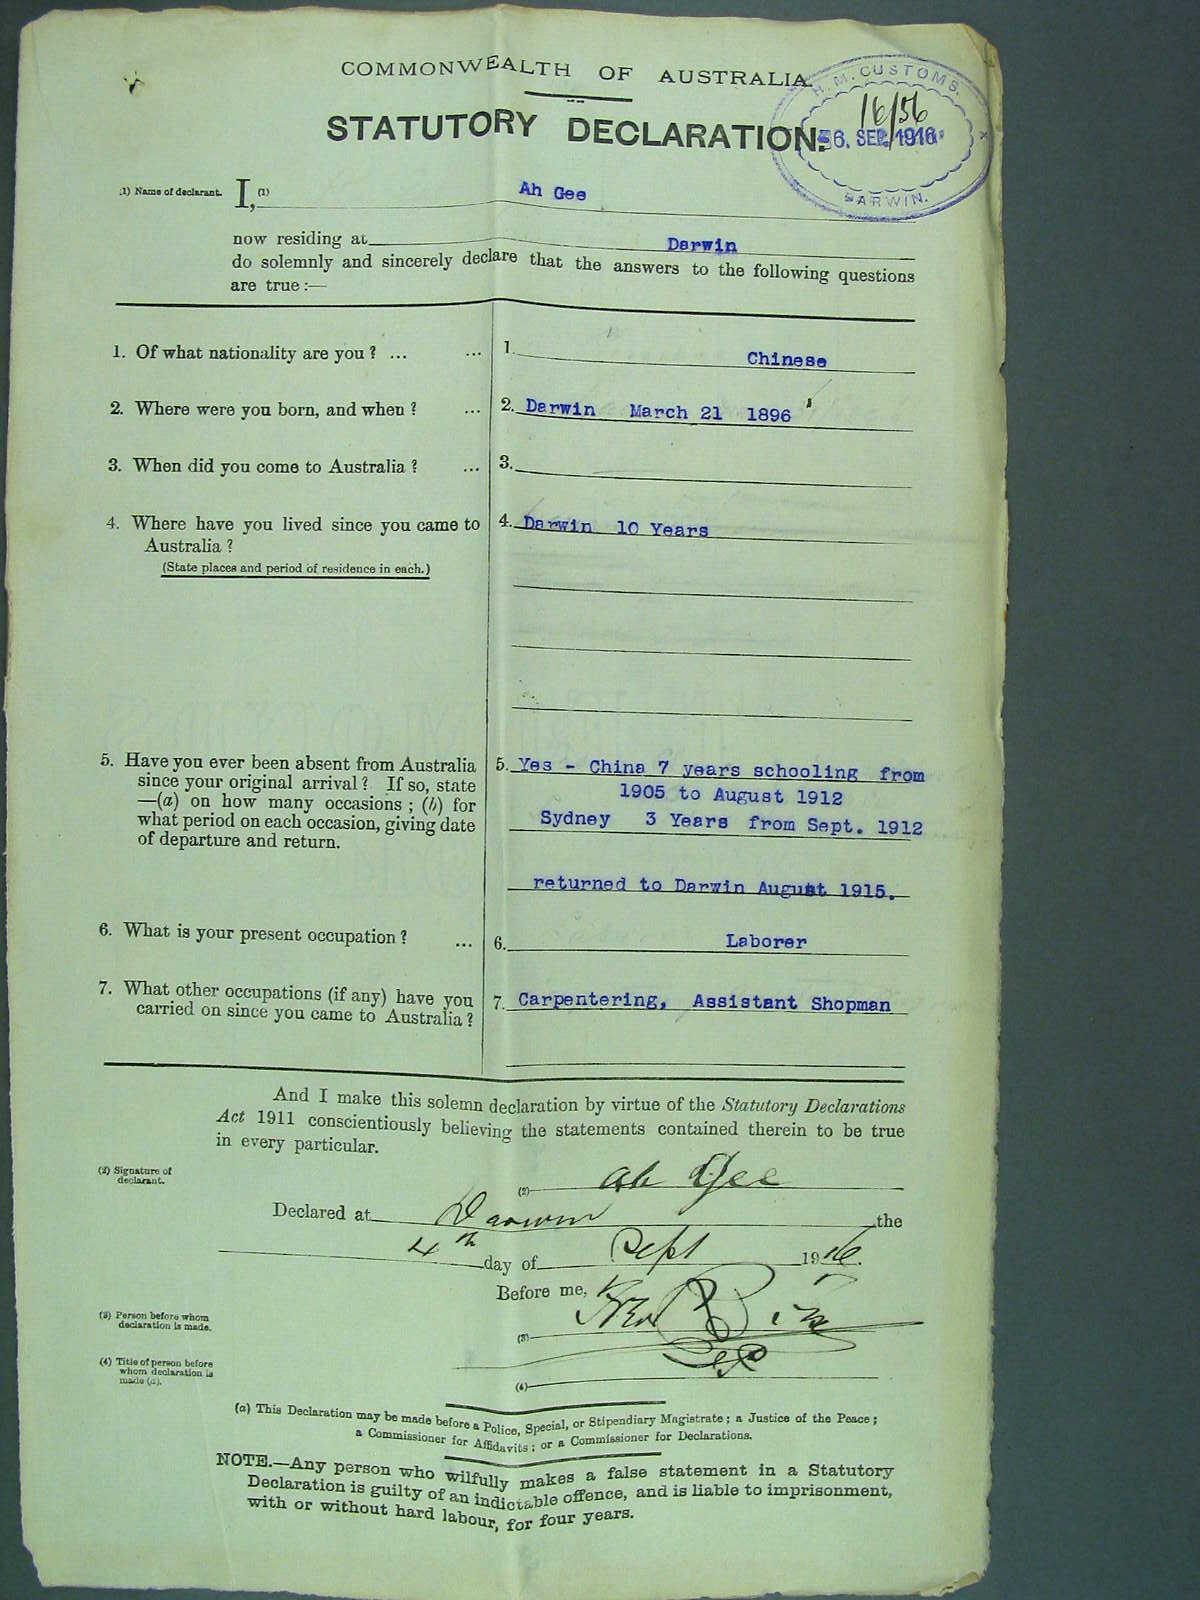 COMMONWEALTH OF AUSTRALIA.
H. M. CUSTOMS.
16/56
6. SEP. 1916
DARWIN.
STATUTORY DECLARATION.
(1) Name of declarant. I, (1) Ah Gee
now residing at Darwin
do solemnly and sincerely declare that the answers to the following questions
are true :—
1. Of what nationality are you ? ... ... 1. Chinese
2. Where were you born, and when ? ... 2. Darwin March 21 1896
3. When did you come to Australia ? ... 3.
4. Where have you lived since you came to 4. Darwin 10 Years
Australia ?
(State places and period of residence in each.)
5. Have you ever been absent from Australia 5. Yes - China 7 years schooling from
since your original arrival ? If so, state 1905 to August 1912
—(a) on how many occasions ; (b) for
what period on each occasion, giving date Sydney 3 Years from Sept. 1912
of departure and return.
returned to Darwin August 1915.
6. What is your present occupation ? ... 6. Laborer
7. What other occupations (if any) have you 7. Carpentering, Assistant Shopman
carried on since you came to Australia ?
And I make this solemn declaration by virtue of the Statutory Declarations
Act 1911 conscientiously believing the statements contained therein to be true
in every particular.
(2) Signature of
declarant.
(2) Ah Gee
Declared at Darwin the
4th day of Sept 1916.
Before me,
(3) Person before whom
declaration is made.
(3)
(4) Title of person before
whom declaration is
made (a).
(4)
(a) This Declaration may be made before a Police, Special, or Stipendiary Magistrate ; a Justice of the Peace ;
a Commissioner for Affidavits ; or a Commissioner for Declarations.
NOTE.—Any person who wilfully makes a false statement in a Statutory
Declaration is guilty of an indictable offence, and is liable to imprisonment,
with or without hard labour, for four years.